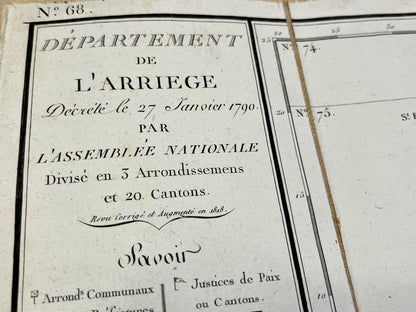 N.º 68.
DÉPARTEMENT
DE
L'ARRIEGE
Décrété le 27 Janvier 1790.
PAR
L'ASSEMBLÉE NATIONALE
Divisé en 3 Arrondissemens
et 20 Cantons.
Revu Corrigé et Augmenté en 1818.
Savoir
Arronds. Communaux
Justices de Paix
ou Cantons.
25
20
N.º 74.
N.º 75.
15
10